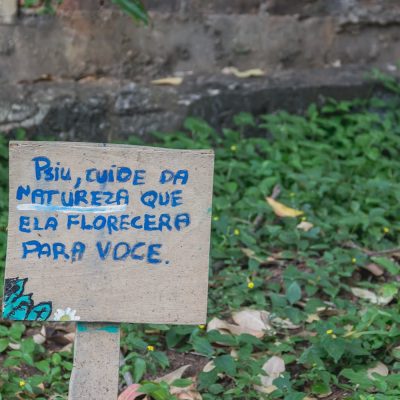 Psiu, CUIDE DA
NATUREZA QUE
ELA FLORECERA
PARA VOCE.